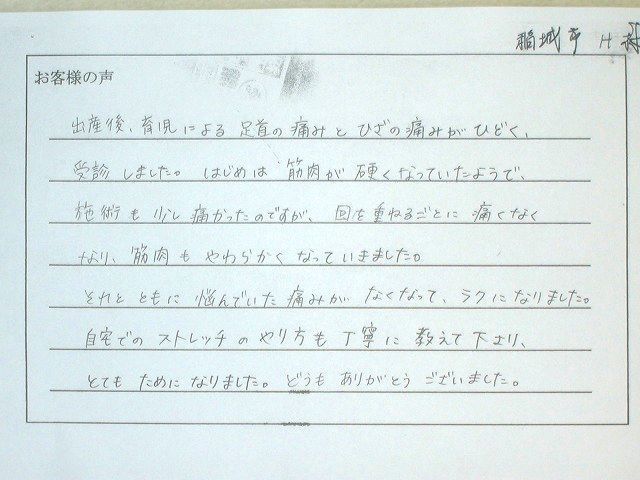 稲城市 H 様
お客様の声
出産後、育児による 足首の痛みと ひざの痛みが ひどく、
受診しました。はじめは 筋肉が 硬くなっていたようで、
施術も少し痛かったのですが、回を重ねるごとに 痛くなく
なり、筋肉も やわらかく なっていきました。
それと ともに 悩んでいた 痛みが なくなって、ラクになりました。
自宅での ストレッチの やり方も 丁寧に 教えて 下さり、
とても ために なりました。どうも ありがとう ございました。